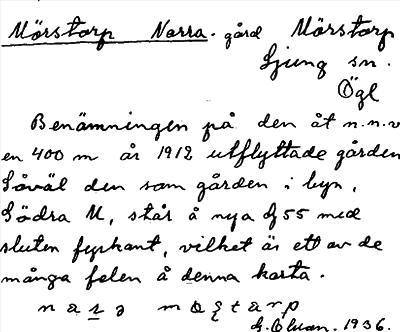 Mörstorp Norra. gård Mörstorp
Ljung sn.
Ögl
Benämningen på den åt n.n.v
en 400 m år 1912 utflyttade gården
Såväl den som gården i byn,
Södra M, står å nya bl 55 med
sluten fyrkant, vilket är ett av de
många felen å denna karta.
G. Eluan. 1936.